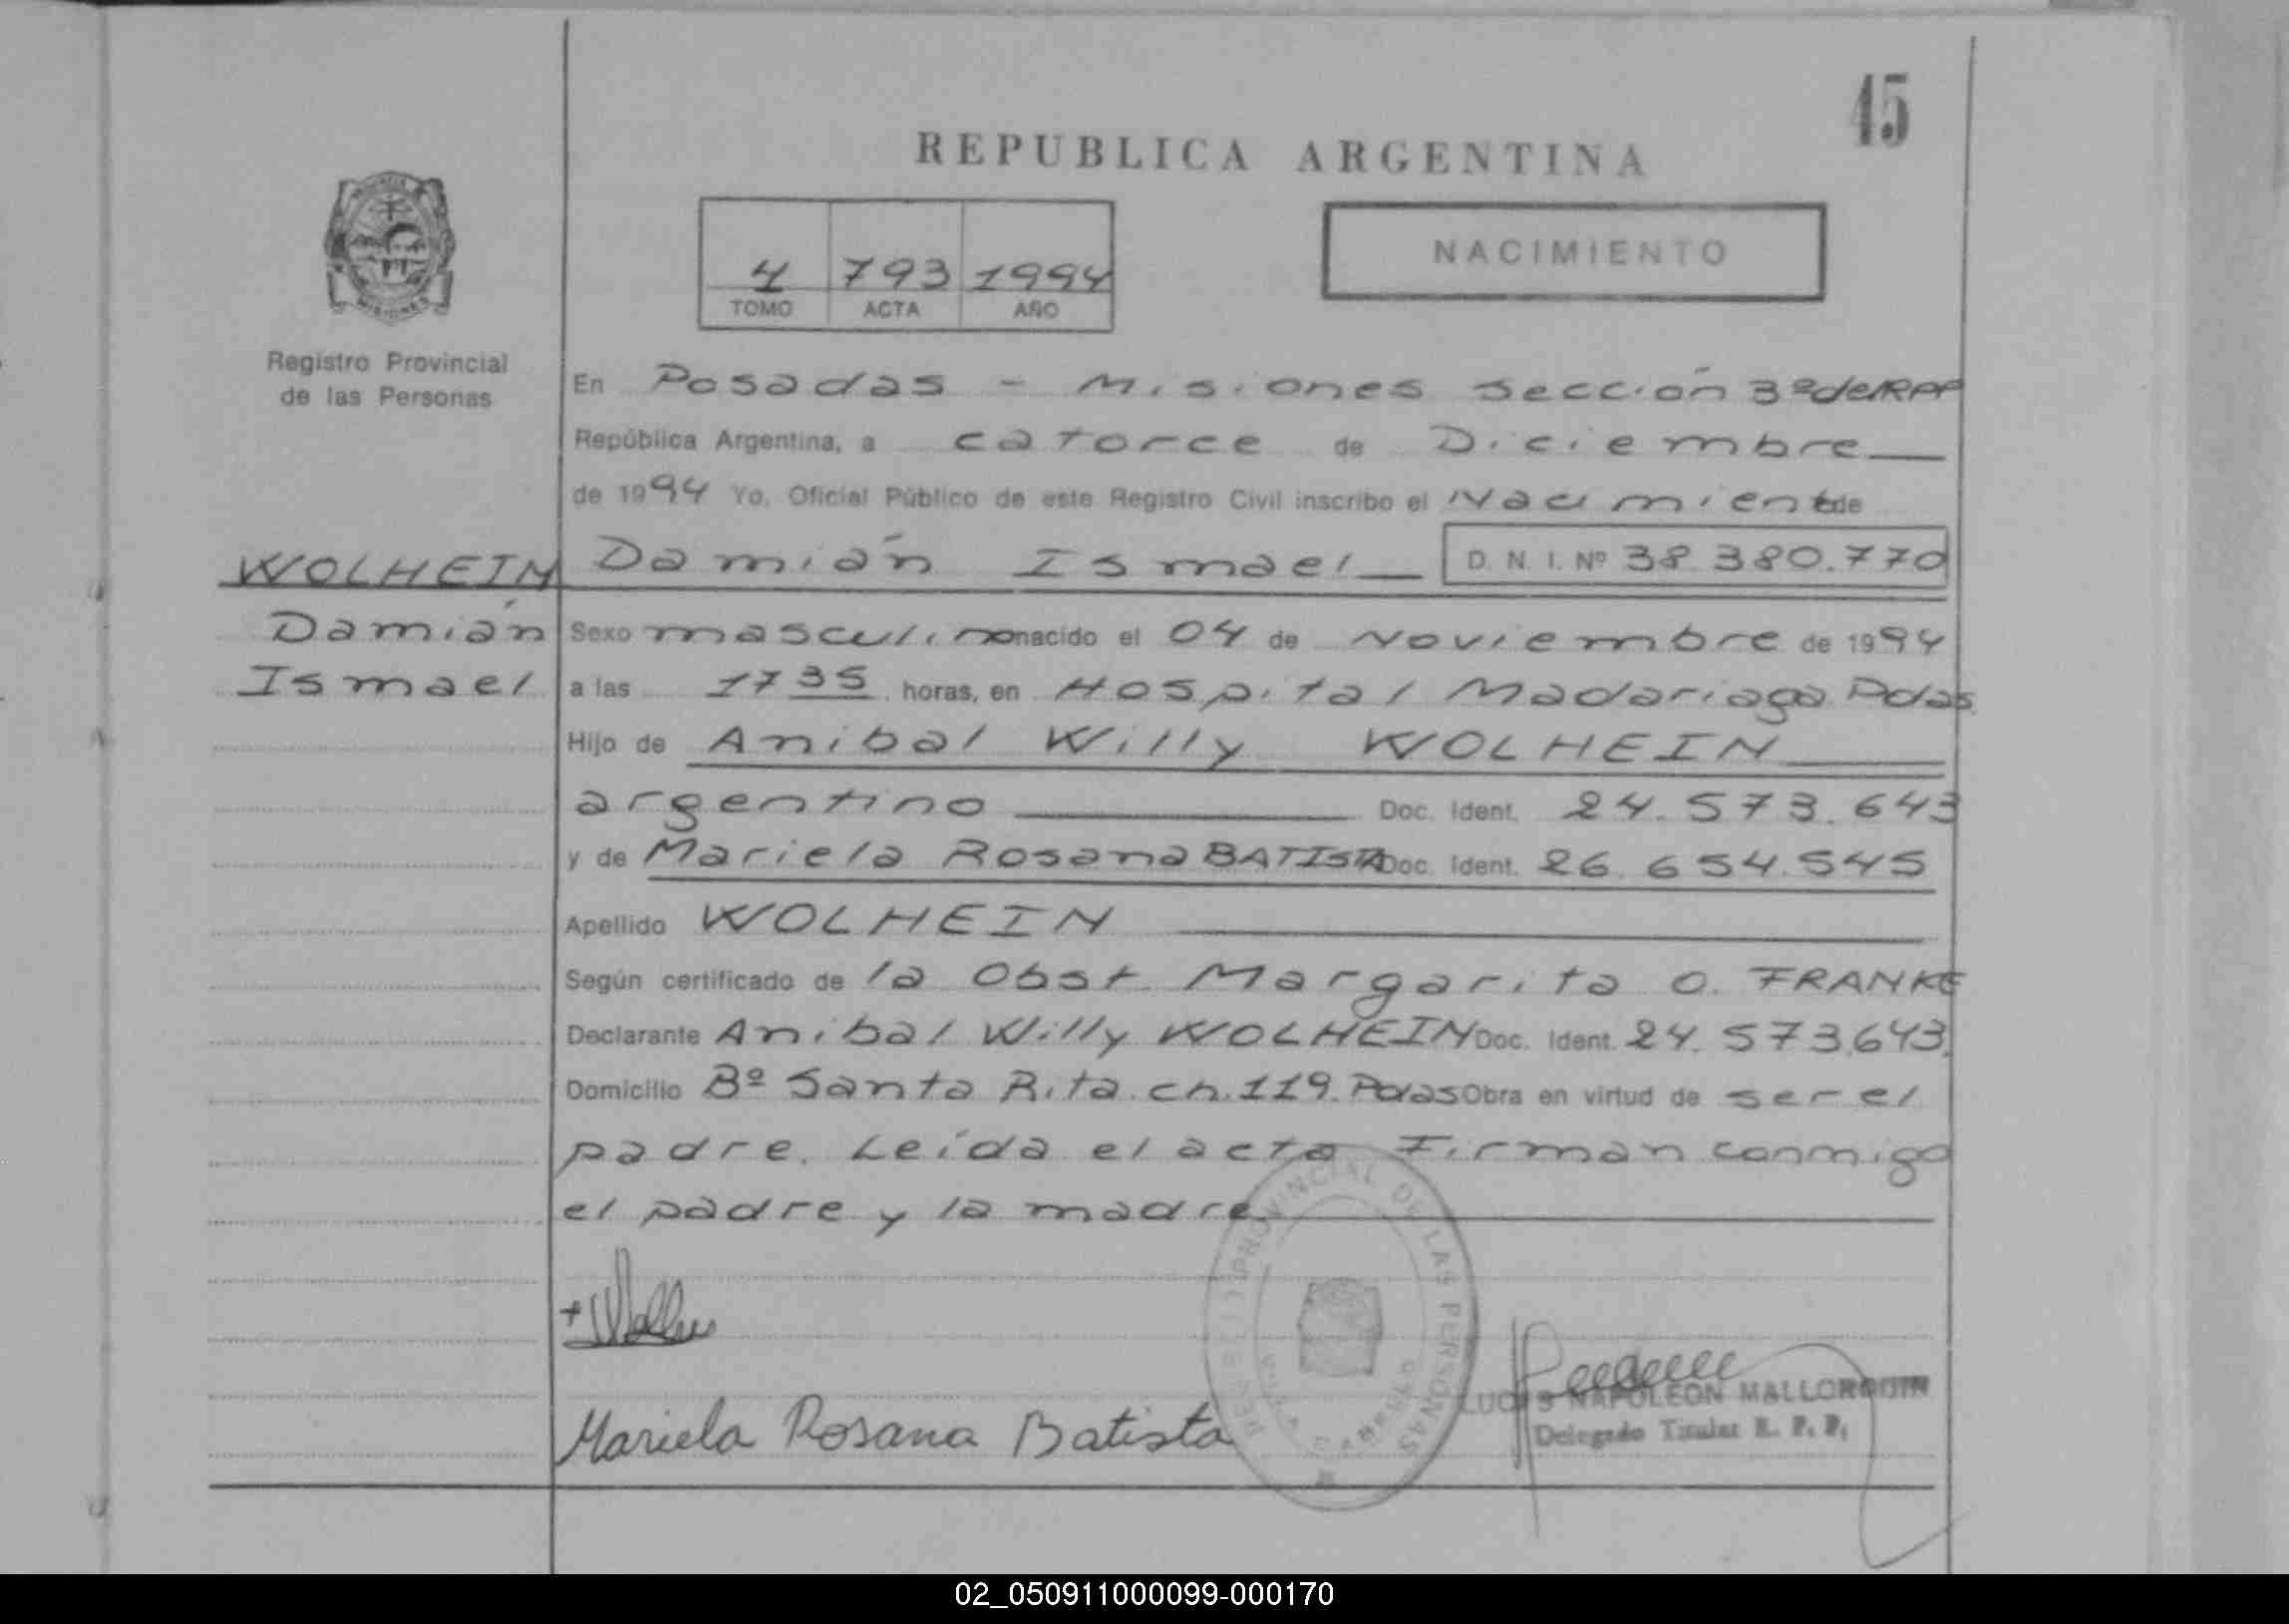 45
REPUBLICA ARGENTINA
4 793 1994
TOMO ACTA AÑO
NACIMIENTO
MISIONES
Registro Provincial
de las Personas
En Posadas - Misiones Sección 3ª del RPP
República Argentina, a catorce de Diciembre
de 1994 Yo, Oficial Público de este Registro Civil inscribo el Nacimiento de
WOLHEIN Damián Ismael D. N. I. Nº 38.380.770
Damián Sexo masculino nacido el 04 de Noviembre de 1994
Ismael a las 17 35 horas, en Hospital Madariaga Pdas
Hijo de Anibal Willy WOLHEIN
argentino Doc. Ident. 24.573.643
y de Mariela Rosana BATISTA Doc. Ident. 26.654.545
Apellido WOLHEIN
Según certificado de la Obst. Margarita O. FRANKE
Declarante Anibal Willy WOLHEIN Doc. Ident. 24.573.643.
Domicilio Bº Santa Rita. ch. 119. Pdas Obra en virtud de ser el
padre. Leída el acta Firman conmigo
el padre y la madre
PROVINCIAL DE LAS PERSONAS
Mariela Rosana Batista
NAPOLEON MALLORQUIN
Delegado Titular R. P. P.
02_050911000099-000170